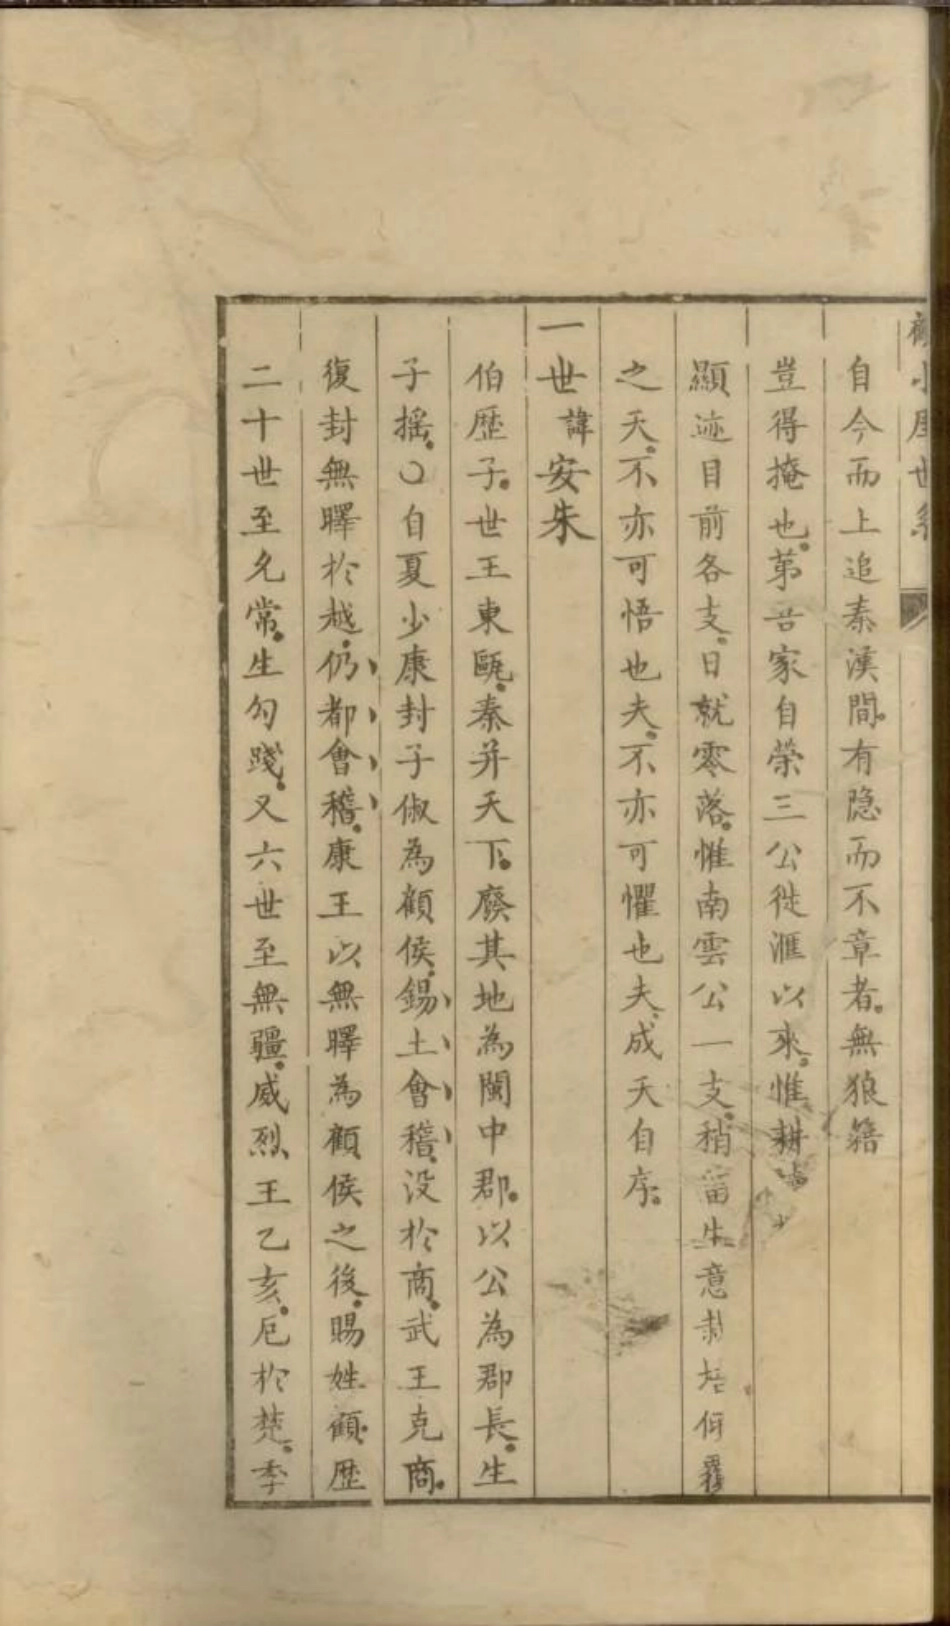 小厔世系
自今而上追秦漢間有隐而不章者無狼籍
豈得掩也第吾家自榮三公徙滙以來惟耕
顯迹目前各支日就零落惟南雲公一支稍留生意栽培傾覆
之天不亦可悟也夫不亦可懼也夫成天自序
一世諱安朱
伯歷子世王東甌秦并天下廢其地為閩中郡以公為郡長生
子搖〇自夏少康封子俶為顧侯錫土會稽没於商武王克商
復封無曎於越仍都會稽康王以無曎為顧侯之後賜姓顧歷
二十世至允常生勾踐又六世至無疆威烈王乙亥厄於楚季